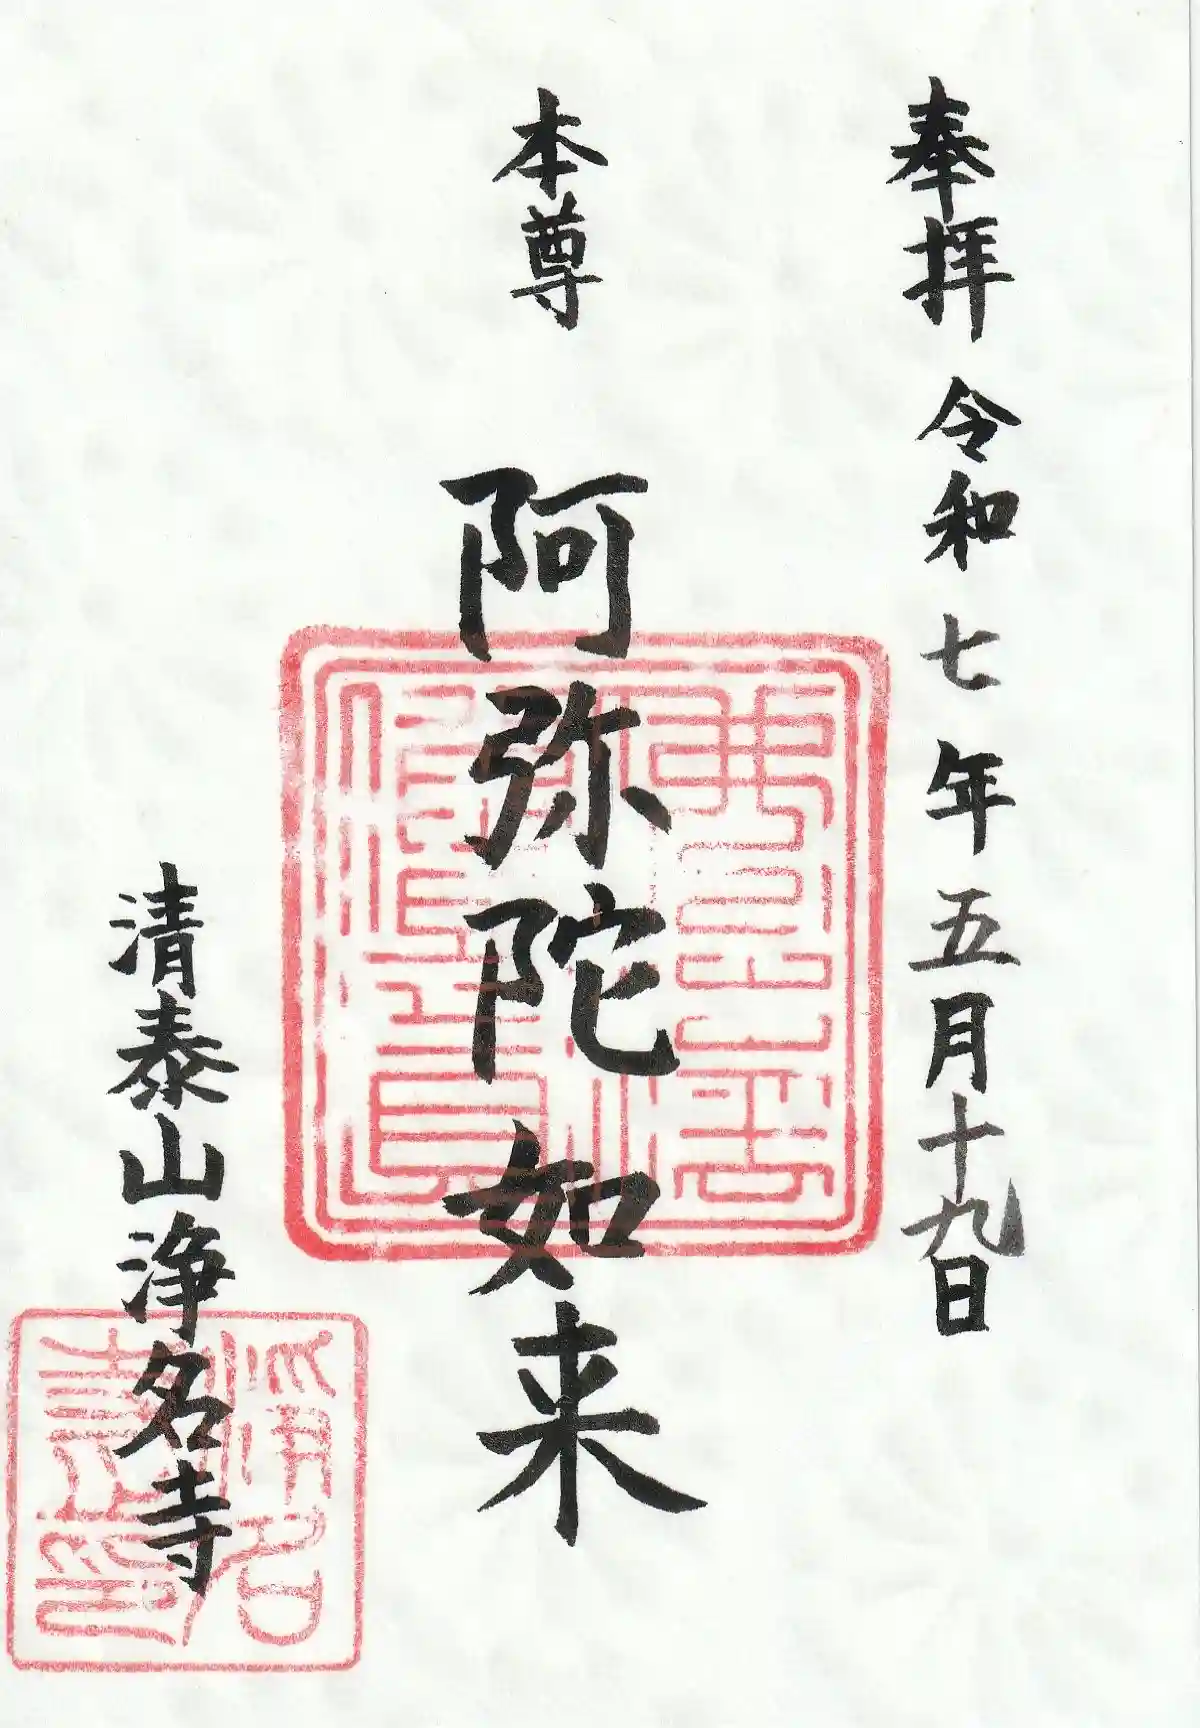 奉拝 令和七年五月十九日
本尊 阿弥陀如来
清泰山浄名寺